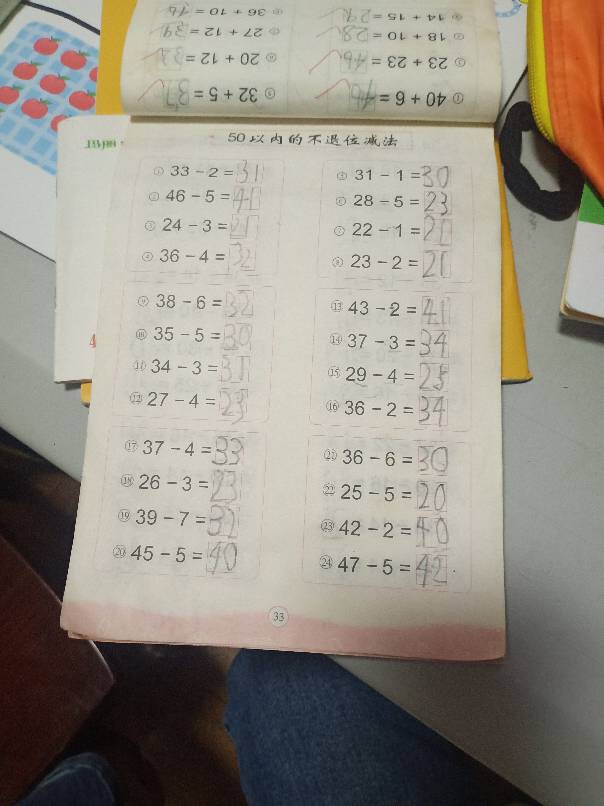 ⑤ 36 + 10 = 46
④ 14 + 15 = 29
⑥ 27 + 12 = 39
③ 18 + 10 = 28
⑥ 20 + 12 =
② 23 + 23 = 46
⑤ 32 + 5 = 37
① 40 + 6 = 46
50以内的不退位减法
① 33 - 2 = 31
⑤ 31 - 1 = 30
② 46 - 5 = 41
⑥ 28 - 5 = 23
③ 24 - 3 = 21
⑦ 22 - 1 = 21
④ 36 - 4 = 32
⑧ 23 - 2 = 21
⑨ 38 - 6 = 32
⑬ 43 - 2 = 41
⑩ 35 - 5 = 30
⑭ 37 - 3 = 34
⑪ 34 - 3 = 31
⑮ 29 - 4 = 25
⑫ 27 - 4 = 23
⑯ 36 - 2 = 34
⑰ 37 - 4 = 33
㉑ 36 - 6 = 30
⑱ 26 - 3 = 23
㉒ 25 - 5 = 20
⑲ 39 - 7 = 32
㉓ 42 - 2 = 40
⑳ 45 - 5 = 40
㉔ 47 - 5 = 42
33